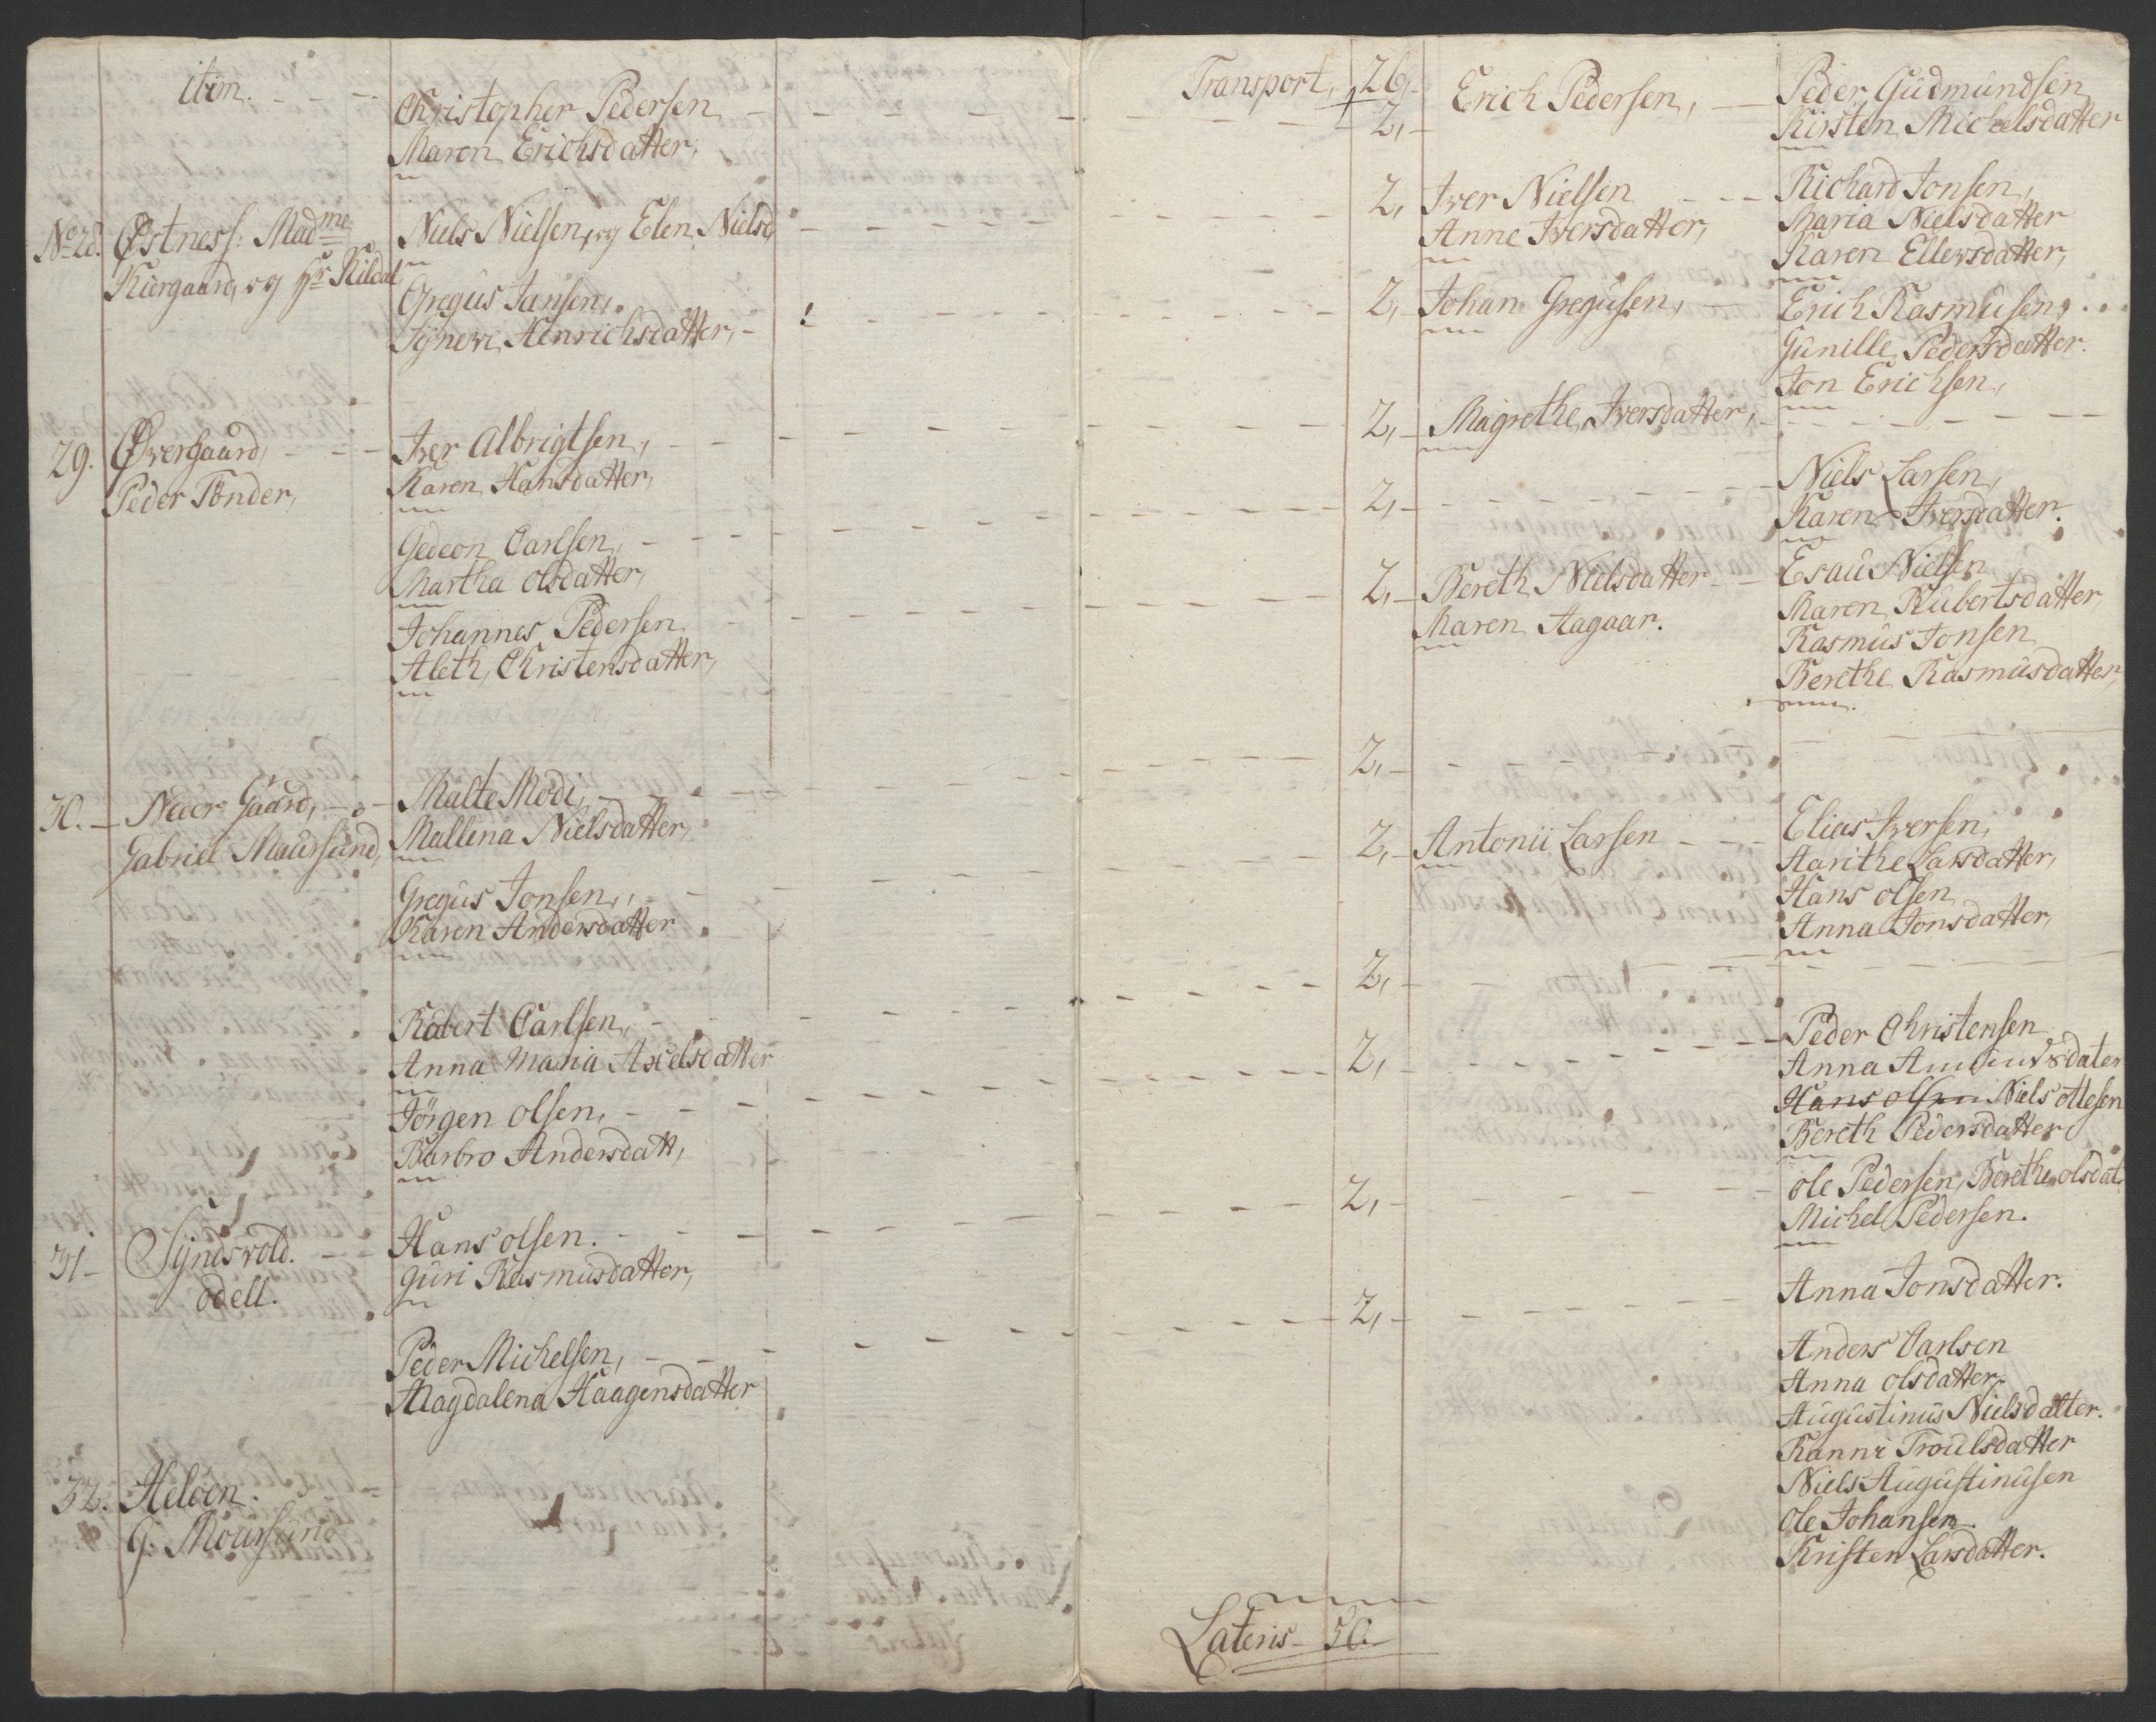 itim.
Christopher Pedersen
Maren Erichsdatter,
No 28. Østness: Madme
Kiergaard, og Hr Kildal
Niels Nielsen, og Elen Nielsd
Gregus Jansen,
Sÿnevi Henrichsdatter,
29. Øvergaard,
Peder Tønder,
Iver Albrigtsen,
Karen Hansdatter,
Gedeon Carlsen,
Martha olsdatter,
Johannes Pedersen
Aleth, Christensdatter,
30. Neder Gaard,
Gabriel Maursund,
Malte Modi,
Mallena Nielsdatter,
Gregus Jonsen,
Karen Andersdatter
Rubert Carlsen,
Anna Maria Axelsdatter
Jörgen olsen,
Barbro Andersdatt,
31 Sÿndsvold.
odell.
Hans olsen.
Guri Rasmusdatter,
Peder Michelsen,
Magdalena Haagensdatter
32. Heloen.
G. Moursund
Transport, 26,
2,
Erich Pedersen,
Peder Gudmundsen
Kirsten Michelsdatter
2, Iver Nielsen
Anne Iversdatter,
Richard Jonsen,
Maria Nielsdatter
Karen Ellersdatter,
2, Johan Gregusen,
Erich Rasmusen,
Gunille Pedersdatter.
Jon Erichsen,
2, Magrethe Iversdatter,
2,
Niels Larsen,
Karen Iversdatter.
2, Bereth Nielsdatter
Maren Aagaar.
Esau Nielsen
Maren Rubertsdatter
Rasmus Jonsen
Berethe Rasmusdatter,
2,
2, Antonii Larsen
Elias Iversen,
Aarithe Larsdatter,
Hans olsen
Anna Jonsdatter,
2,
2,
Peder Christensen
Anna
Hans olsen Niels ottesen
Bereth Pedersdatter
2,
ole Pedersen, Berethe olsdat.
Michel Pedersen.
2,
Anna Jonsdatter.
Anders Carlsen
Anna olsdatter
Augustinus Nielsdatter.
Ranni Troulsdatter
Niels Augustinusen
Ole Johansen.
Kristen Larsdatter.
Lateris 50.